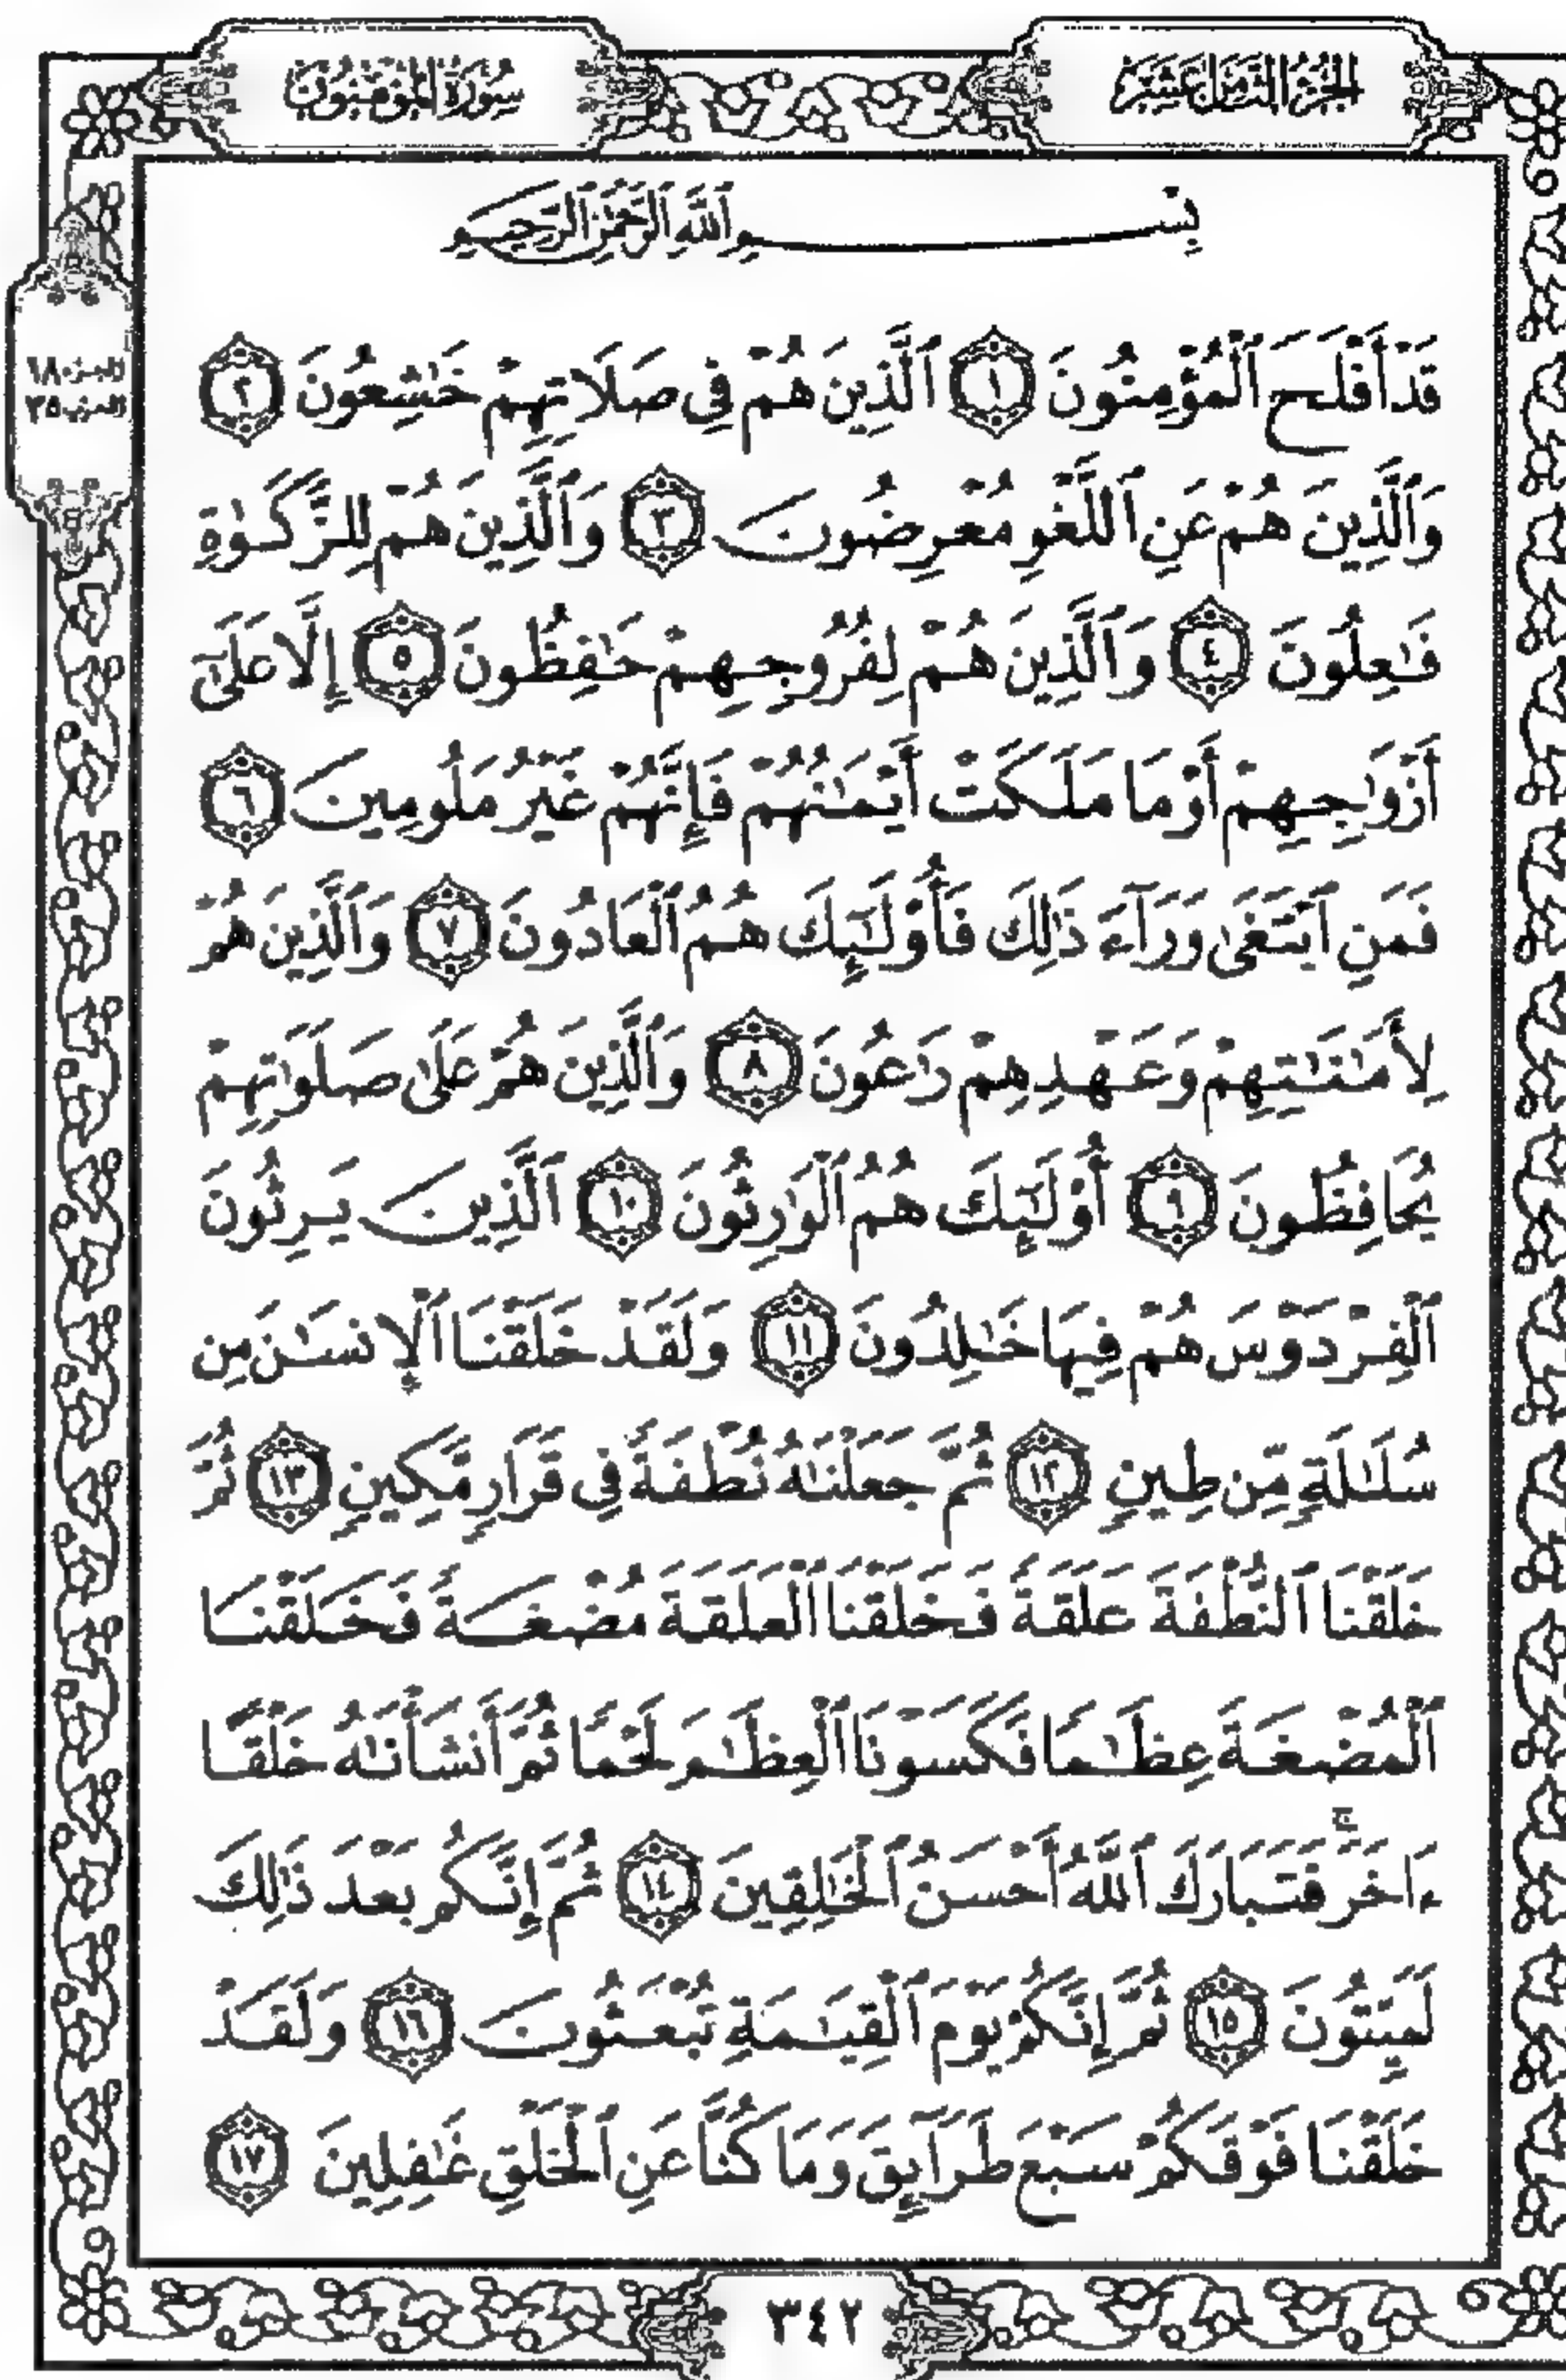 الجزء الثامن عشر
سورة المؤمنون
الجزء ١٨
الحزب ٣٥
بِسْمِ ٱللَّهِ ٱلرَّحْمَٰنِ ٱلرَّحِيمِ
قَدْ أَفْلَحَ ٱلْمُؤْمِنُونَ ١ ٱلَّذِينَ هُمْ فِى صَلَاتِهِمْ خَٰشِعُونَ ٢
وَٱلَّذِينَ هُمْ عَنِ ٱللَّغْوِ مُعْرِضُونَ ٣ وَٱلَّذِينَ هُمْ لِلزَّكَوٰةِ
فَٰعِلُونَ ٤ وَٱلَّذِينَ هُمْ لِفُرُوجِهِمْ حَٰفِظُونَ ٥ إِلَّا عَلَىٰٓ
أَزْوَٰجِهِمْ أَوْ مَا مَلَكَتْ أَيْمَٰنُهُمْ فَإِنَّهُمْ غَيْرُ مَلُومِينَ ٦
فَمَنِ ٱبْتَغَىٰ وَرَآءَ ذَٰلِكَ فَأُو۟لَٰٓئِكَ هُمُ ٱلْعَادُونَ ٧ وَٱلَّذِينَ هُمْ
لِأَمَٰنَٰتِهِمْ وَعَهْدِهِمْ رَٰعُونَ ٨ وَٱلَّذِينَ هُمْ عَلَىٰ صَلَوَٰتِهِمْ
يُحَافِظُونَ ٩ أُو۟لَٰٓئِكَ هُمُ ٱلْوَٰرِثُونَ ١٠ ٱلَّذِينَ يَرِثُونَ
ٱلْفِرْدَوْسَ هُمْ فِيهَا خَٰلِدُونَ ١١ وَلَقَدْ خَلَقْنَا ٱلْإِنسَٰنَ مِن
سُلَٰلَةٍ مِّن طِينٍ ١٢ ثُمَّ جَعَلْنَٰهُ نُطْفَةً فِى قَرَارٍ مَّكِينٍ ١٣ ثُمَّ
خَلَقْنَا ٱلنُّطْفَةَ عَلَقَةً فَخَلَقْنَا ٱلْعَلَقَةَ مُضْغَةً فَخَلَقْنَا
ٱلْمُضْغَةَ عِظَٰمًا فَكَسَوْنَا ٱلْعِظَٰمَ لَحْمًا ثُمَّ أَنشَأْنَٰهُ خَلْقًا
ءَاخَرَ ۚ فَتَبَارَكَ ٱللَّهُ أَحْسَنُ ٱلْخَٰلِقِينَ ١٤ ثُمَّ إِنَّكُم بَعْدَ ذَٰلِكَ
لَمَيِّتُونَ ١٥ ثُمَّ إِنَّكُمْ يَوْمَ ٱلْقِيَٰمَةِ تُبْعَثُونَ ١٦ وَلَقَدْ
خَلَقْنَا فَوْقَكُمْ سَبْعَ طَرَآئِقَ وَمَا كُنَّا عَنِ ٱلْخَلْقِ غَٰفِلِينَ ١٧
٣٤٢